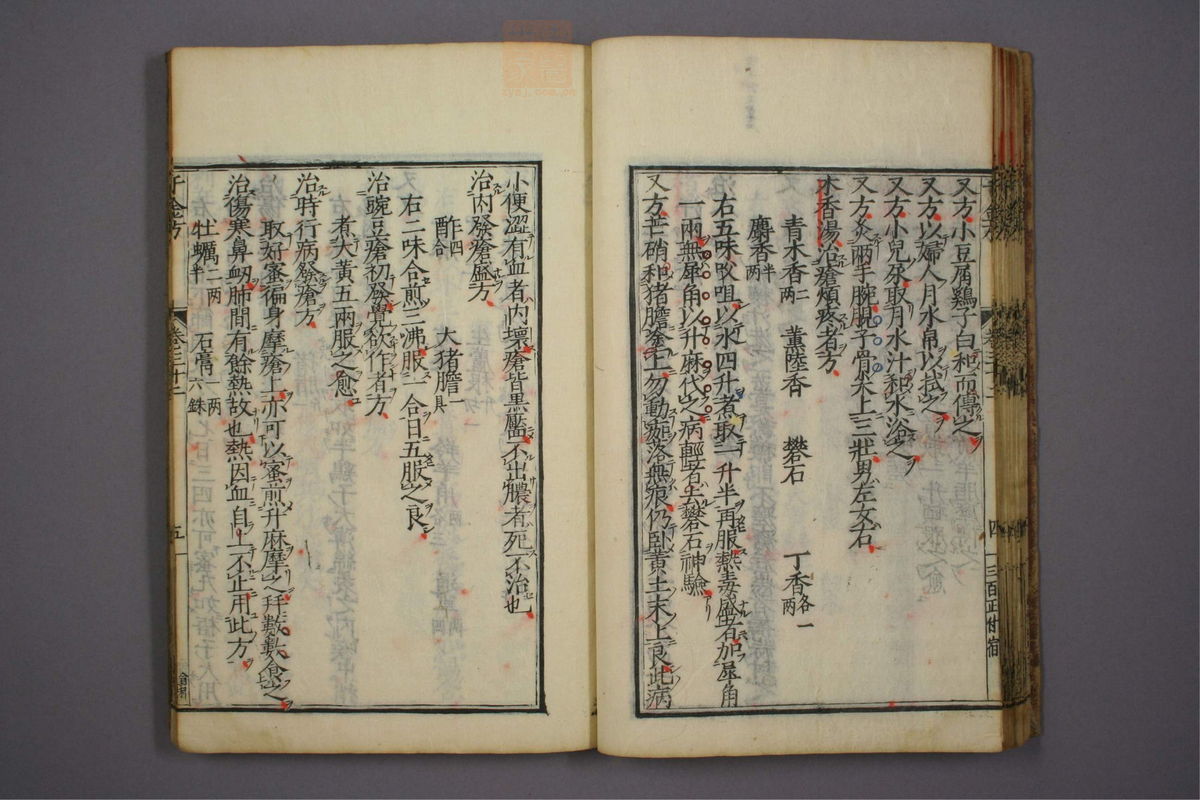 又方小豆屑鷄子白和而傅之
又方以婦人月水帛以拭之
又方小兒尿取月水汁和水浴之
又方灸兩手腕脱子骨尖上三壯男左女右
木香湯治瘡煩疼者方
青木香二兩 薫陸香 礬石 丁香各一兩
麝香半兩
右五味㕮咀以水四升煮取一升半再服熱毒盛者加犀角
一兩無犀角以升麻代之病輕者去礬石神驗
又方芒硝和猪膽塗上勿動痂落無痕仍臥黄土末上良此病
小便澀有血者内壞瘡皆黒靨不出膿者死不治也
治肉發瘡盛方
酢四合 大猪膽一具
右二味合煎三沸服一合日五服之良
治豌豆瘡初發覺欲作者方
煮大黄五兩服之愈
治時行病發瘡方
取好蜜徧身摩瘡上亦可以蜜煎升麻摩之并數數食之
治傷寒鼻衂肺間有餘熱故也熱因血自上不止用此方
牡蠣二兩半 石膏一兩六銖
千金方 卷三十二 五